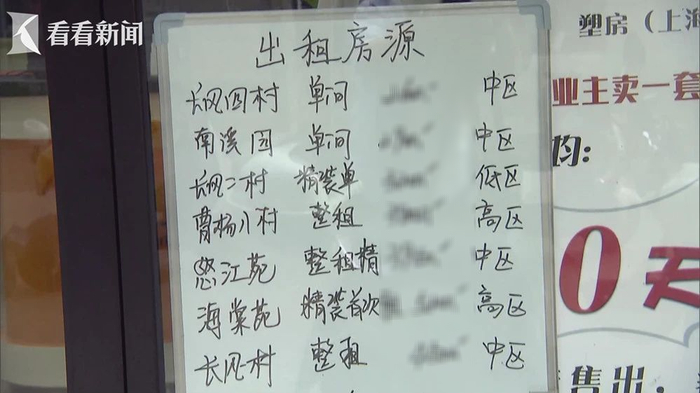 看看新闻
出租房源
长风四村 单间 中区
南溪园 单间 中区
长风二村 精装单 低区
曹杨八村 整租 高区
悠江苑 整租精 中区
海棠苑 精装首次 高区
长风村 整租 中区
塑房（上海
业主卖一套
均:
0天
售出，